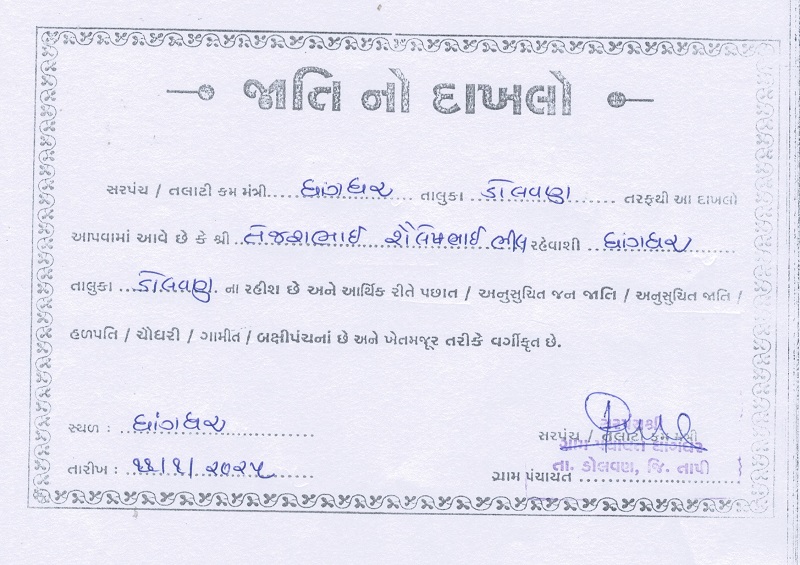 જાતિ નો દાખલો
સરપંચ / તલાટી કમ મંત્રી..... ધાંગધર ..... તાલુકા .. ડોલવણ ....... તરફથી આ દાખલો
આપવામાં આવે છે કે શ્રી .. તેજશભાઈ શૈલેષભાઈ ભીલ રહેવાશી .. ધાંગધર ......
તાલુકા ... ડોલવણ . ના રહીશ છે અને આર્થિક રીતે પછાત / અનુસુચિત જન જાતિ / અનુસુચિત જાતિ /
હળપતિ / ચૌધરી / ગામીત / બક્ષીપંચનાં છે અને ખેતમજૂર તરીકે વર્ગીકૃત છે.
સ્થળ : ધાંગધર
સરપંચશ્રી
સરપંચ / તલાટી કમ મંત્રી
ગ્રામ પંચાયત ધાંગધર
તારીખ : ૧૧/૧/૨૦૨૫
તા. ડોલવણ, જિ. તાપી
ગ્રામ પંચાયત ............................